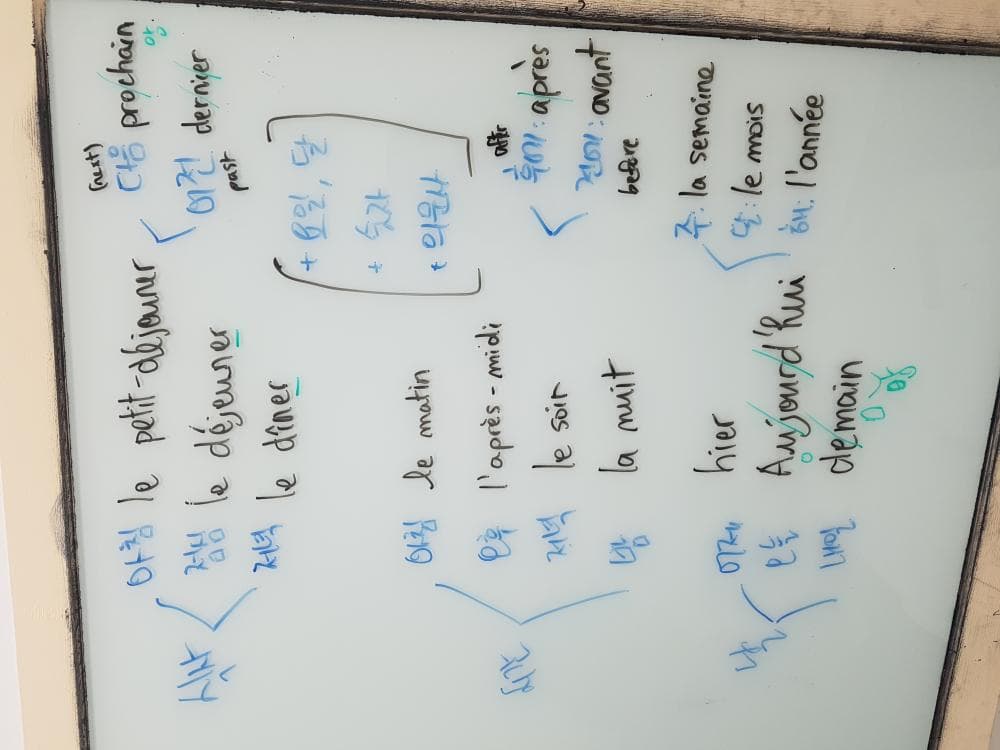 식사
아침 le petit-déjeuner
점심 le déjeuner
저녁 le dîner
(next)
다음 prochain
앙
이전 dernier
past
+ 요일, 달
+ 숫자
+ 의문사
시간
아침 le matin
오후 l'après-midi
저녁 le soir
밤 la nuit
after
후에: après
전에: avant
before
날
어제 hier
오늘 Aujourd'hui
내일 demain
앙
주: la semaine
달: le mois
해: l'année